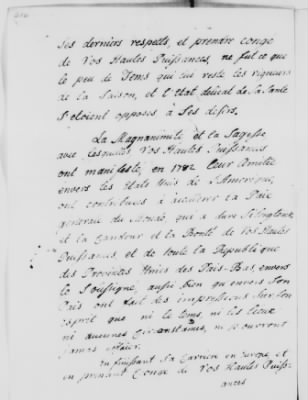 Ses derniers respects, et prendre congé
de Vos Hautes Puissances, ne fut ce que
le peu de Tems qui reste les rigueurs
de la Saison, et l'état délicat de sa Santé
s'etoient opposés à Ses desirs.
La Magnanimité et la Sagesse
avec lesquelles Vos Hautes Puissances
ont manifesté, en 1782 leur Amitié
envers les Etats Unis de l'Amerique,
ont contribués à la Paix
generale du Monde, qui a duré si longtems
et la Candeur et la Bonté de Vos Hautes
Puissances, et de toute la Republique
des Provinces Unies des Pais-Bas, envers
le Soussigné, aussi bien qu'envers Son
Pais ont fait des impressions Sur Son
esprit que ni le tems, ni les lieux
ni aucunes Circonstances, ne pourront
jamais effacer.
En finissant Sa Carriere en Europe et
en prenant Congé de Vos Hautes Puiss-
ances